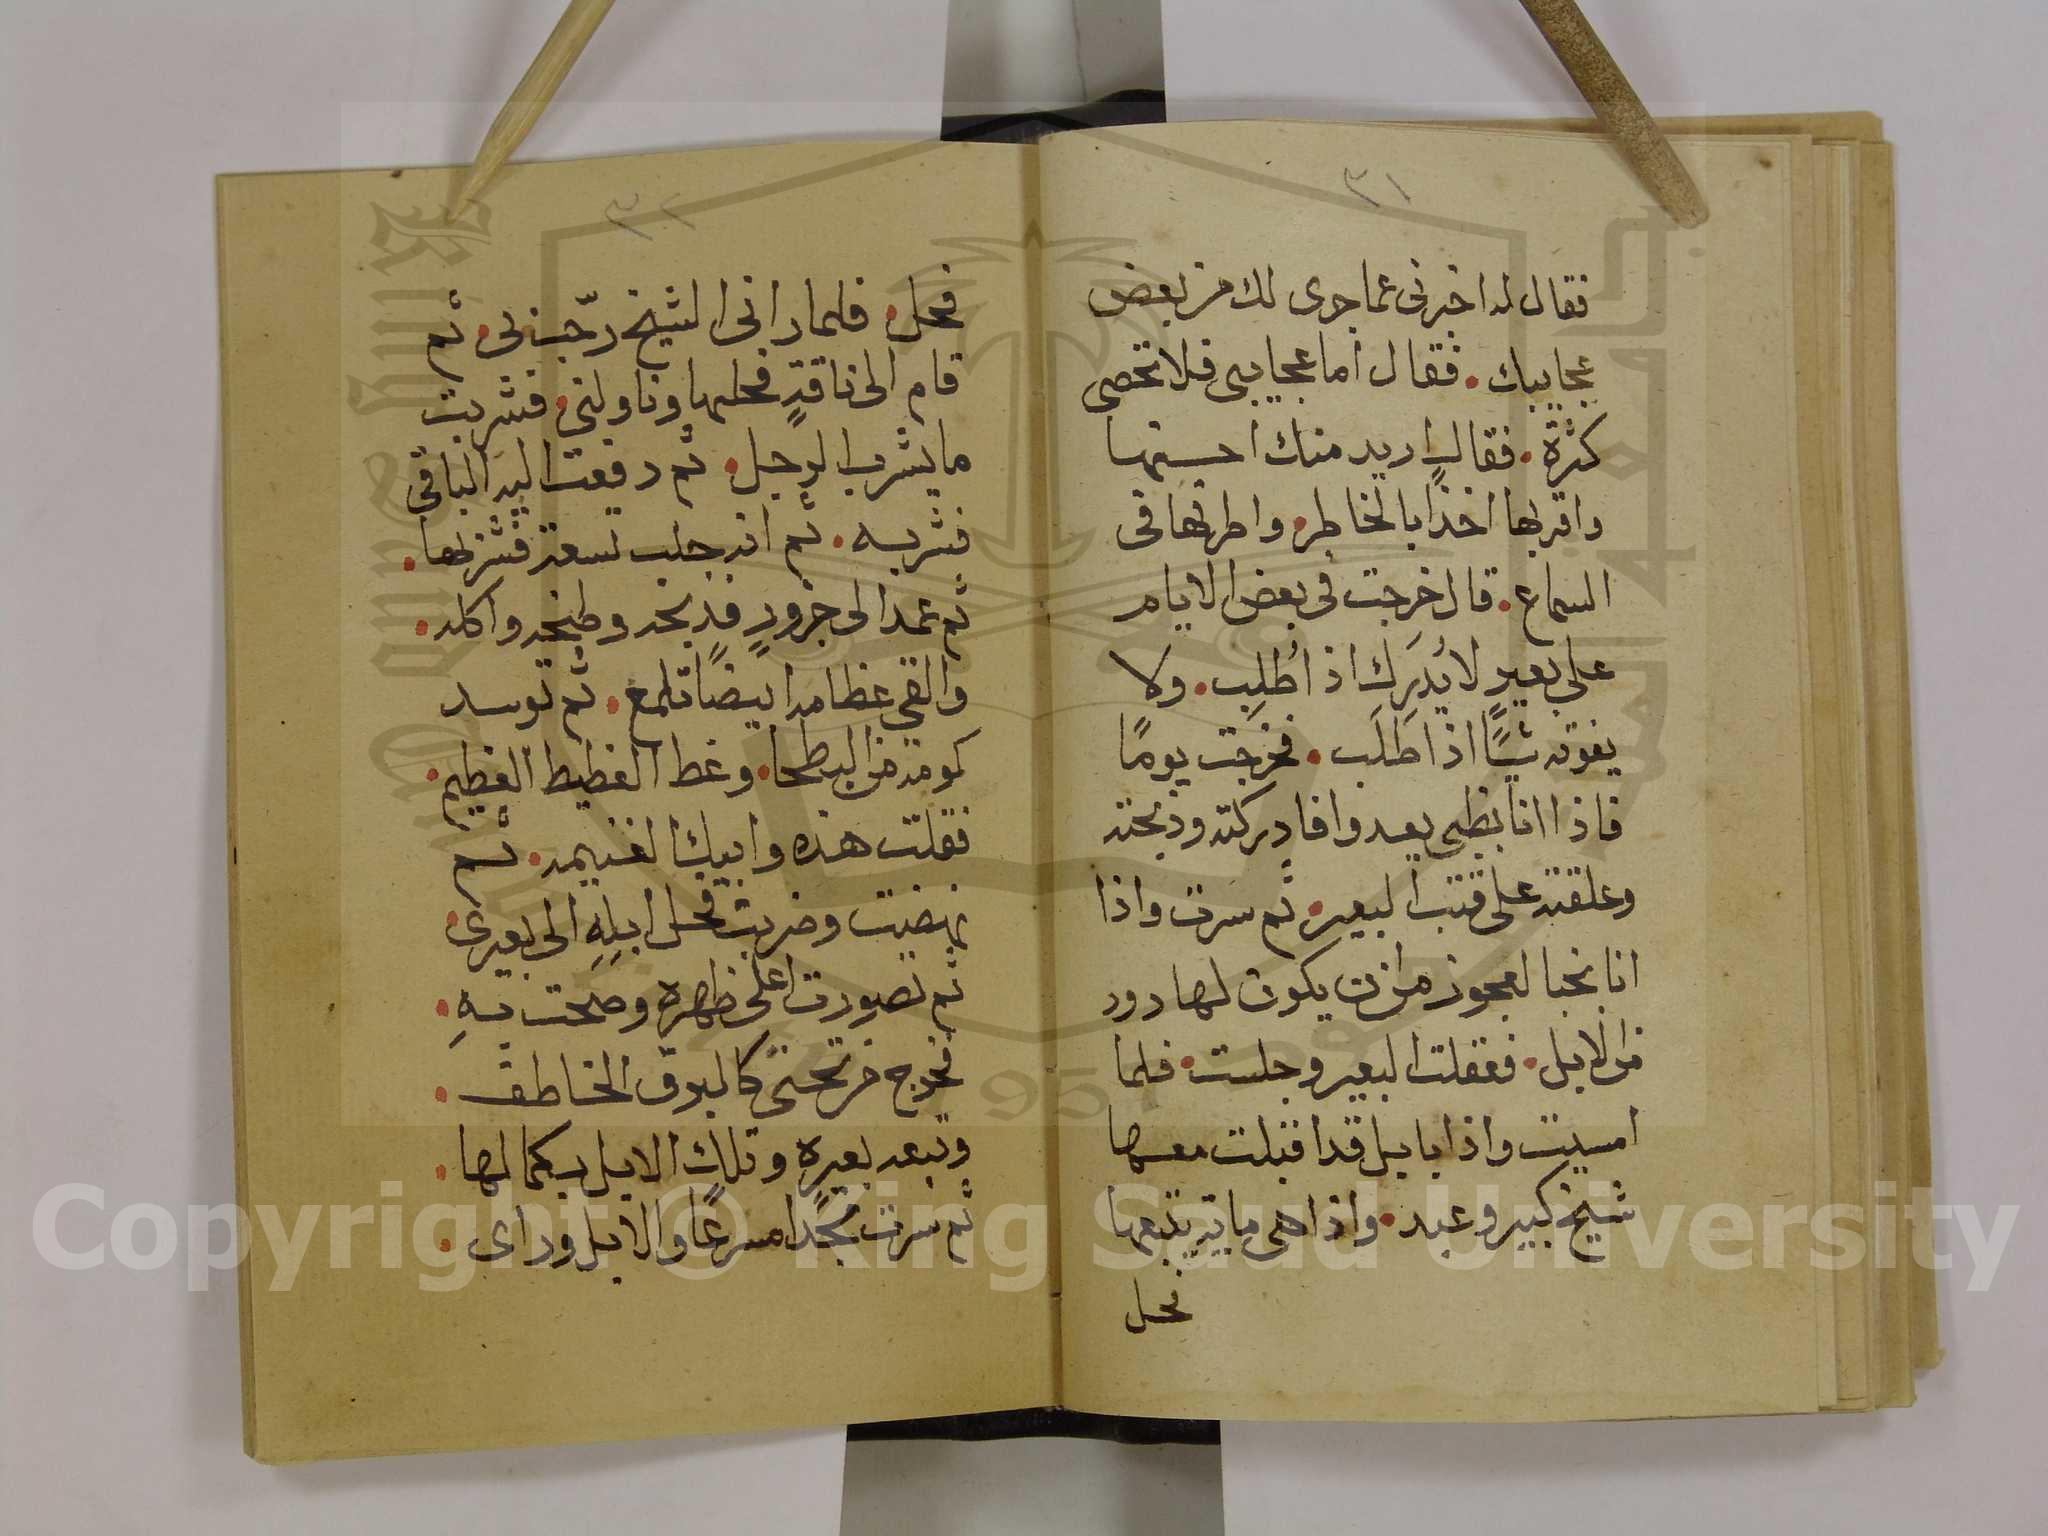 ٣١
فقال له اخبرنى عما جرى لك من بعض
عجايبك . فقال اما عجايبى فلا تحصى
كثرة . فقال اريد منك احسنها
واقربها اخذا بالخاطر . واطربها فى
السماع . قال خرجت فى بعض الايام
على بعيرٍ لا يُدرَك اذ اُطلِب . ولا
يفوته شيًا اذا طَلَب . فخرجت يومًا
فاذا انا بظبى يعدوا فادركته وذبحته
وعلقته على قتب البعير . ثم سرت واذا
انا بخبا لعجوز من ان يكون لها دور
من الابل . فعقلت البعير وجلست . فلما
امسيت واذا بابل قد اقبلت معها
شيخ كبير وعبد . واذا هى ماية يتبعها
فحل
٣٢
فحل . فلما رانى الشيخ رحّب بى . ثم
قام الى ناقةٍ فحلبها وناولنى . فشربت
ما يشرب الرجل . ثم دفعت اليه الباقى
فشربه . ثم انه حلب تسعة فشربها .
ثم عمد الى جزورٍ فذبحه وطبخه واكله .
والقى عظامه ابيضًا تلمع . ثم توسد
كومة من البطحا . وغط الغطيط العظيم .
فقلت هذه وابيك الغنيمه . ثم
نهضت وضربت فحل ابلِهِ الى بعيرى .
ثم تصورت اعلى ظهره وصحت بهِ .
فخرج من تحتى كالبرق الخاطف .
وتبعه بعيره وتلك الابل بكمالها .
ثم سرت مجدًا مسرعًا والابل وراى .
Copyright © King Saud University
1957